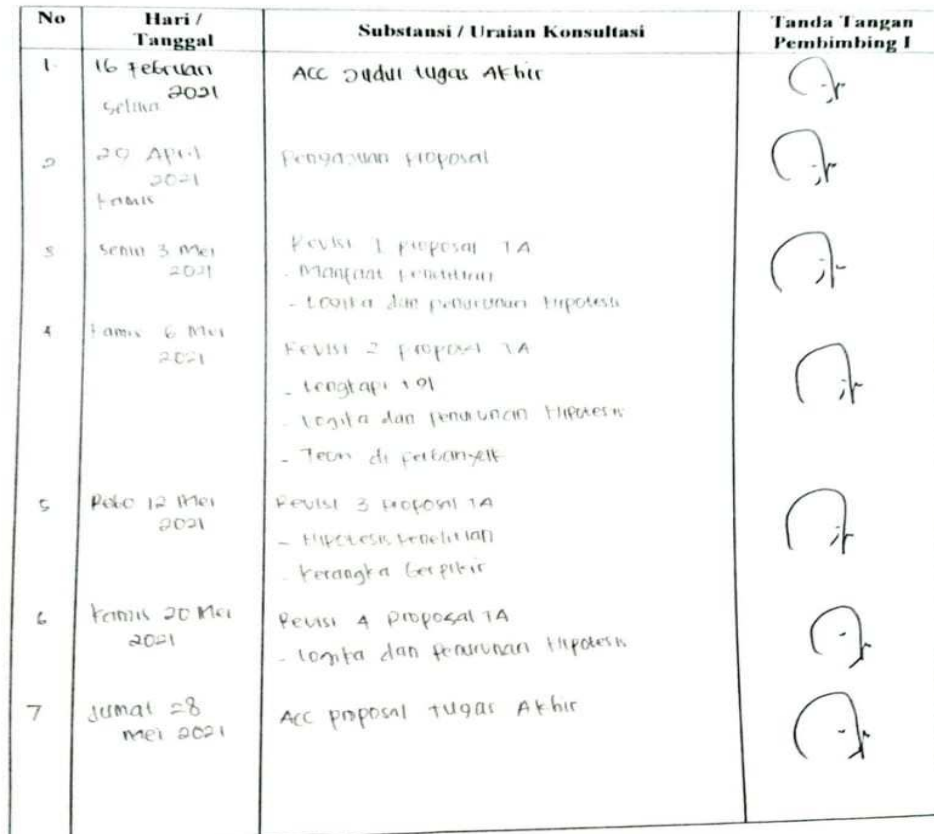 No
Hari /
Tanggal
Substansi / Uraian Konsultasi
Tanda Tangan
Pembimbing I
1. 16 Februari
2021
Selasa
ACC Judul tugas Akhir
2 29 April
2021
Kamis
Pengajuan Proposal
3 Senin 3 Mei
2021
Revisi 1 proposal TA
- Manfaat penelitian
- Logika dan penurunan Hipotesis
4 Kamis 6 Mei
2021
Revisi 2 proposal TA
- Lengkapi
- Logika dan penurunan Hipotesis
- Teori di perbanyak
5 Rabo 12 Mei
2021
Revisi 3 proposal TA
- Hipotesis Penelitian
- Kerangka berpikir
6 Kamis 20 Mei
2021
Revisi 4 proposal TA
- Logika dan Penurunan Hipotesis
7 Jumat 28
Mei 2021
Acc proposal tugas Akhir